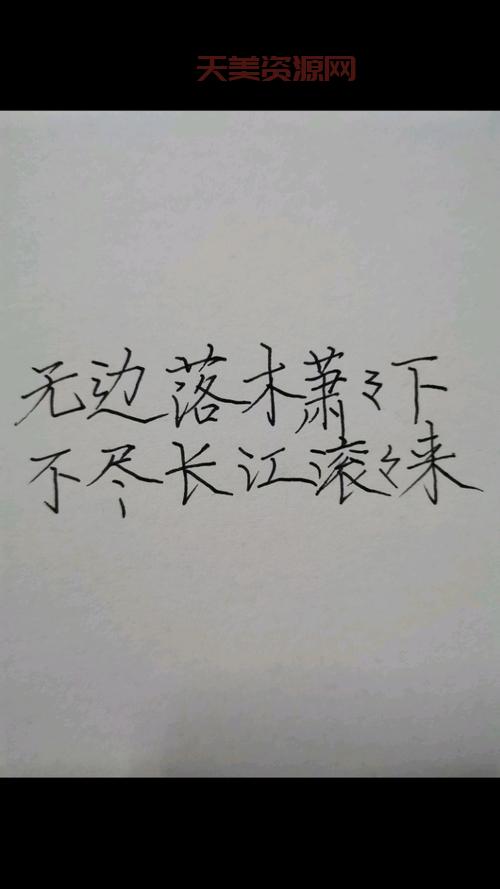 天美资源网
无边落木萧々下
不尽长江滚々来